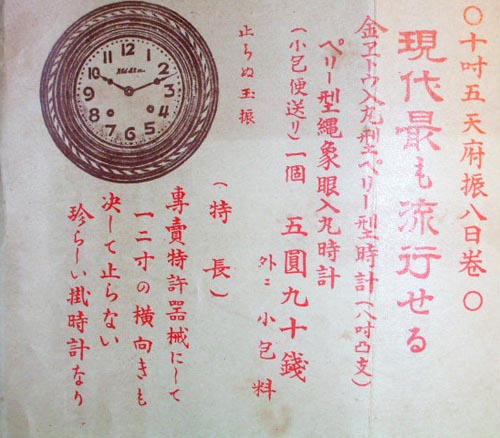 〇十吋五天府振八日巻〇
現代最も流行せる
金ヱトウ入丸型ペリー型時計(八吋凸支)
ペリー型縄象眼入丸時計
(小包便送り)一個 五圓九十錢
外ニ 小包料
止らぬ玉振
(特長)
專賣特許器械にして
一二寸の横向きも
決して止らない
珍らしい掛時計なり
12
1
2
3
4
5
6
7
8
9
10
11